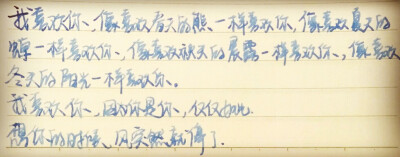 我喜欢你、像喜欢春天的熊一样喜欢你、像喜欢夏天的
一样喜欢你、像喜欢秋天的晨露一样喜欢你、像喜欢
冬天的阳光一样喜欢你。
我喜欢你、因为你是你、仅仅如此.
想你的时候、风突然就停了.